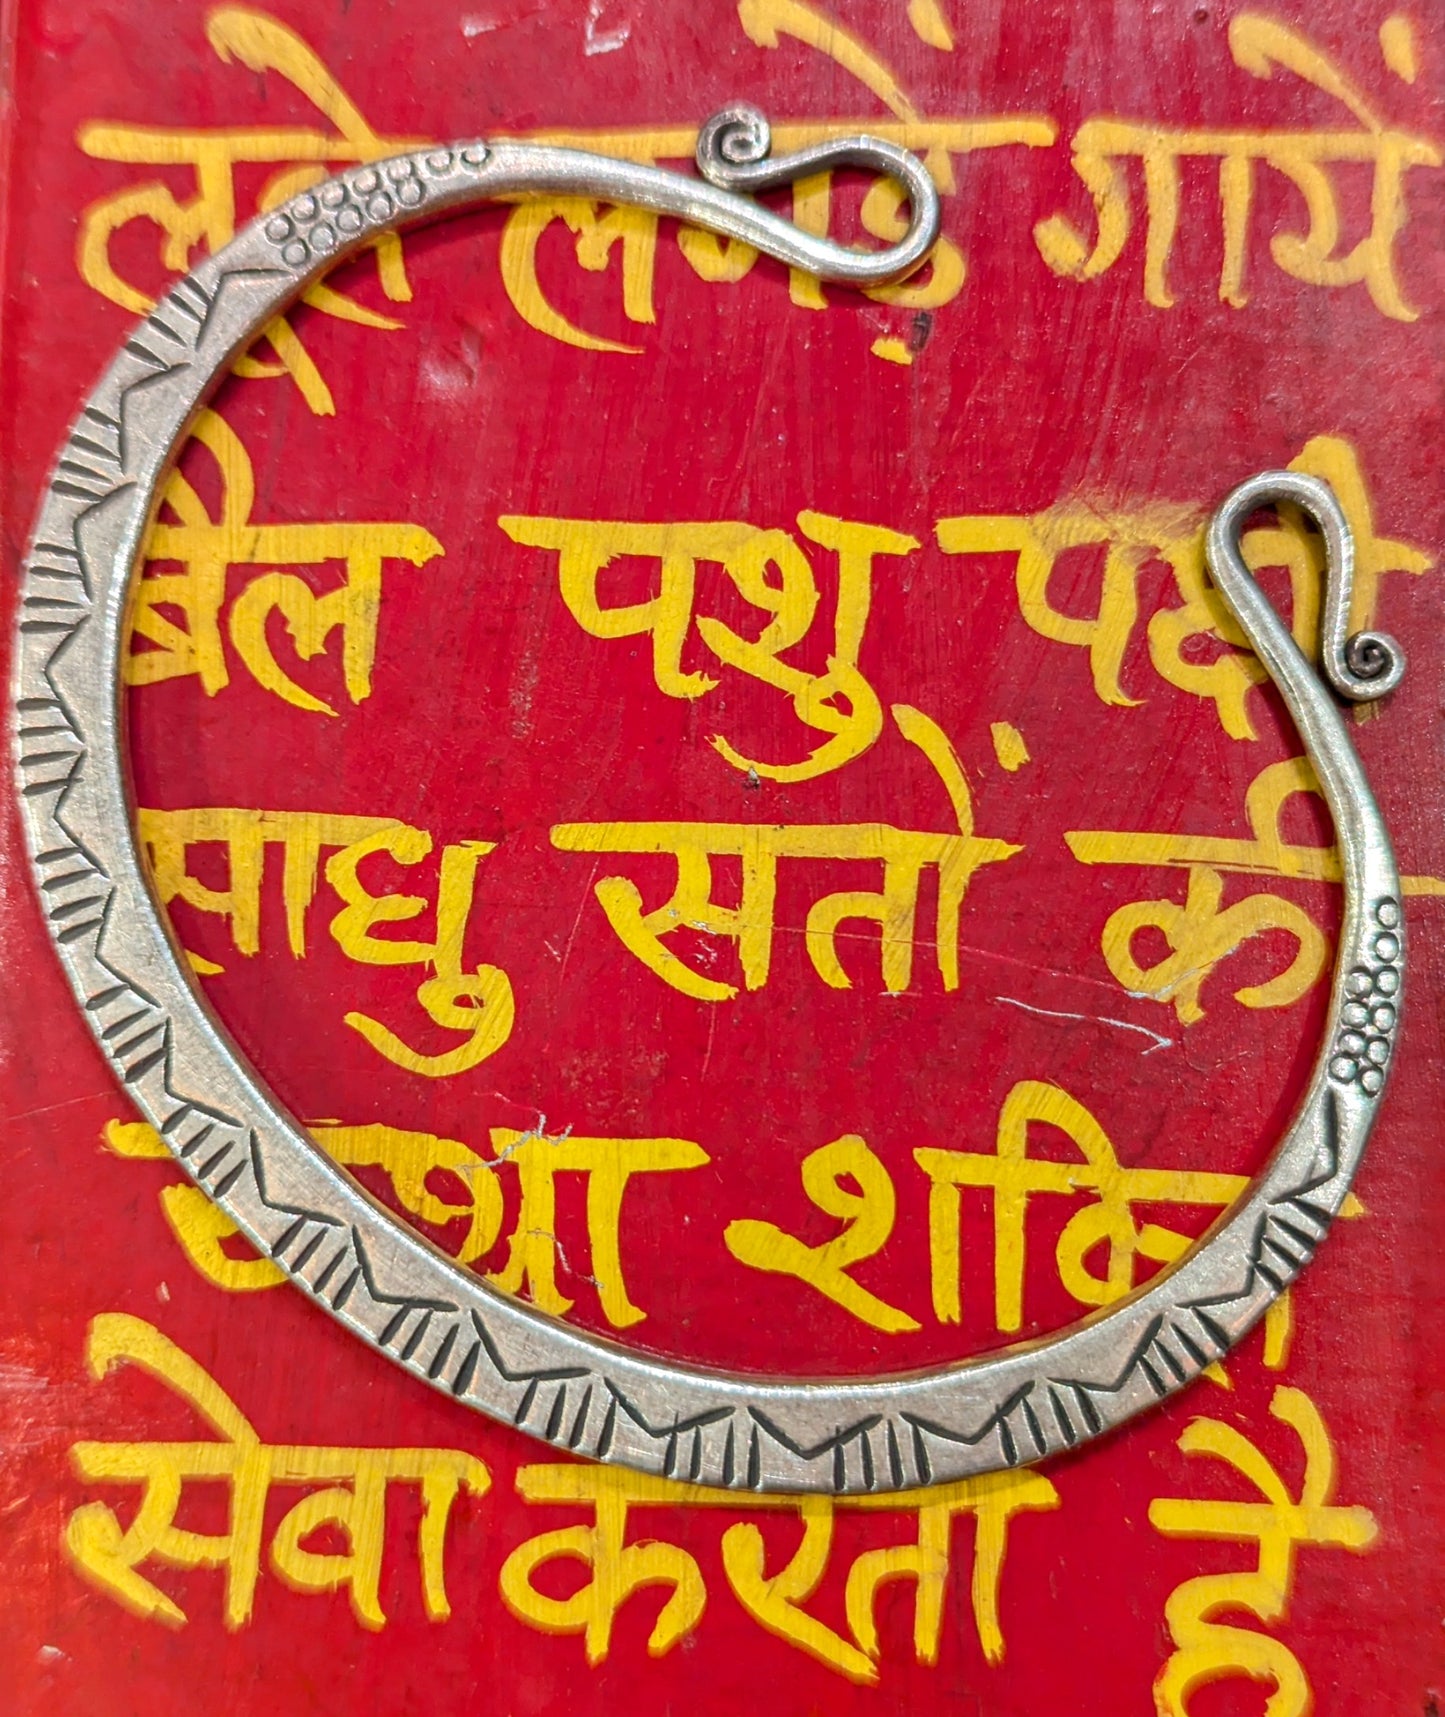 लूले लगड़ें गायें
बैल पशु पक्षी
साधु सतों की
शक्ति
सेवा करता है